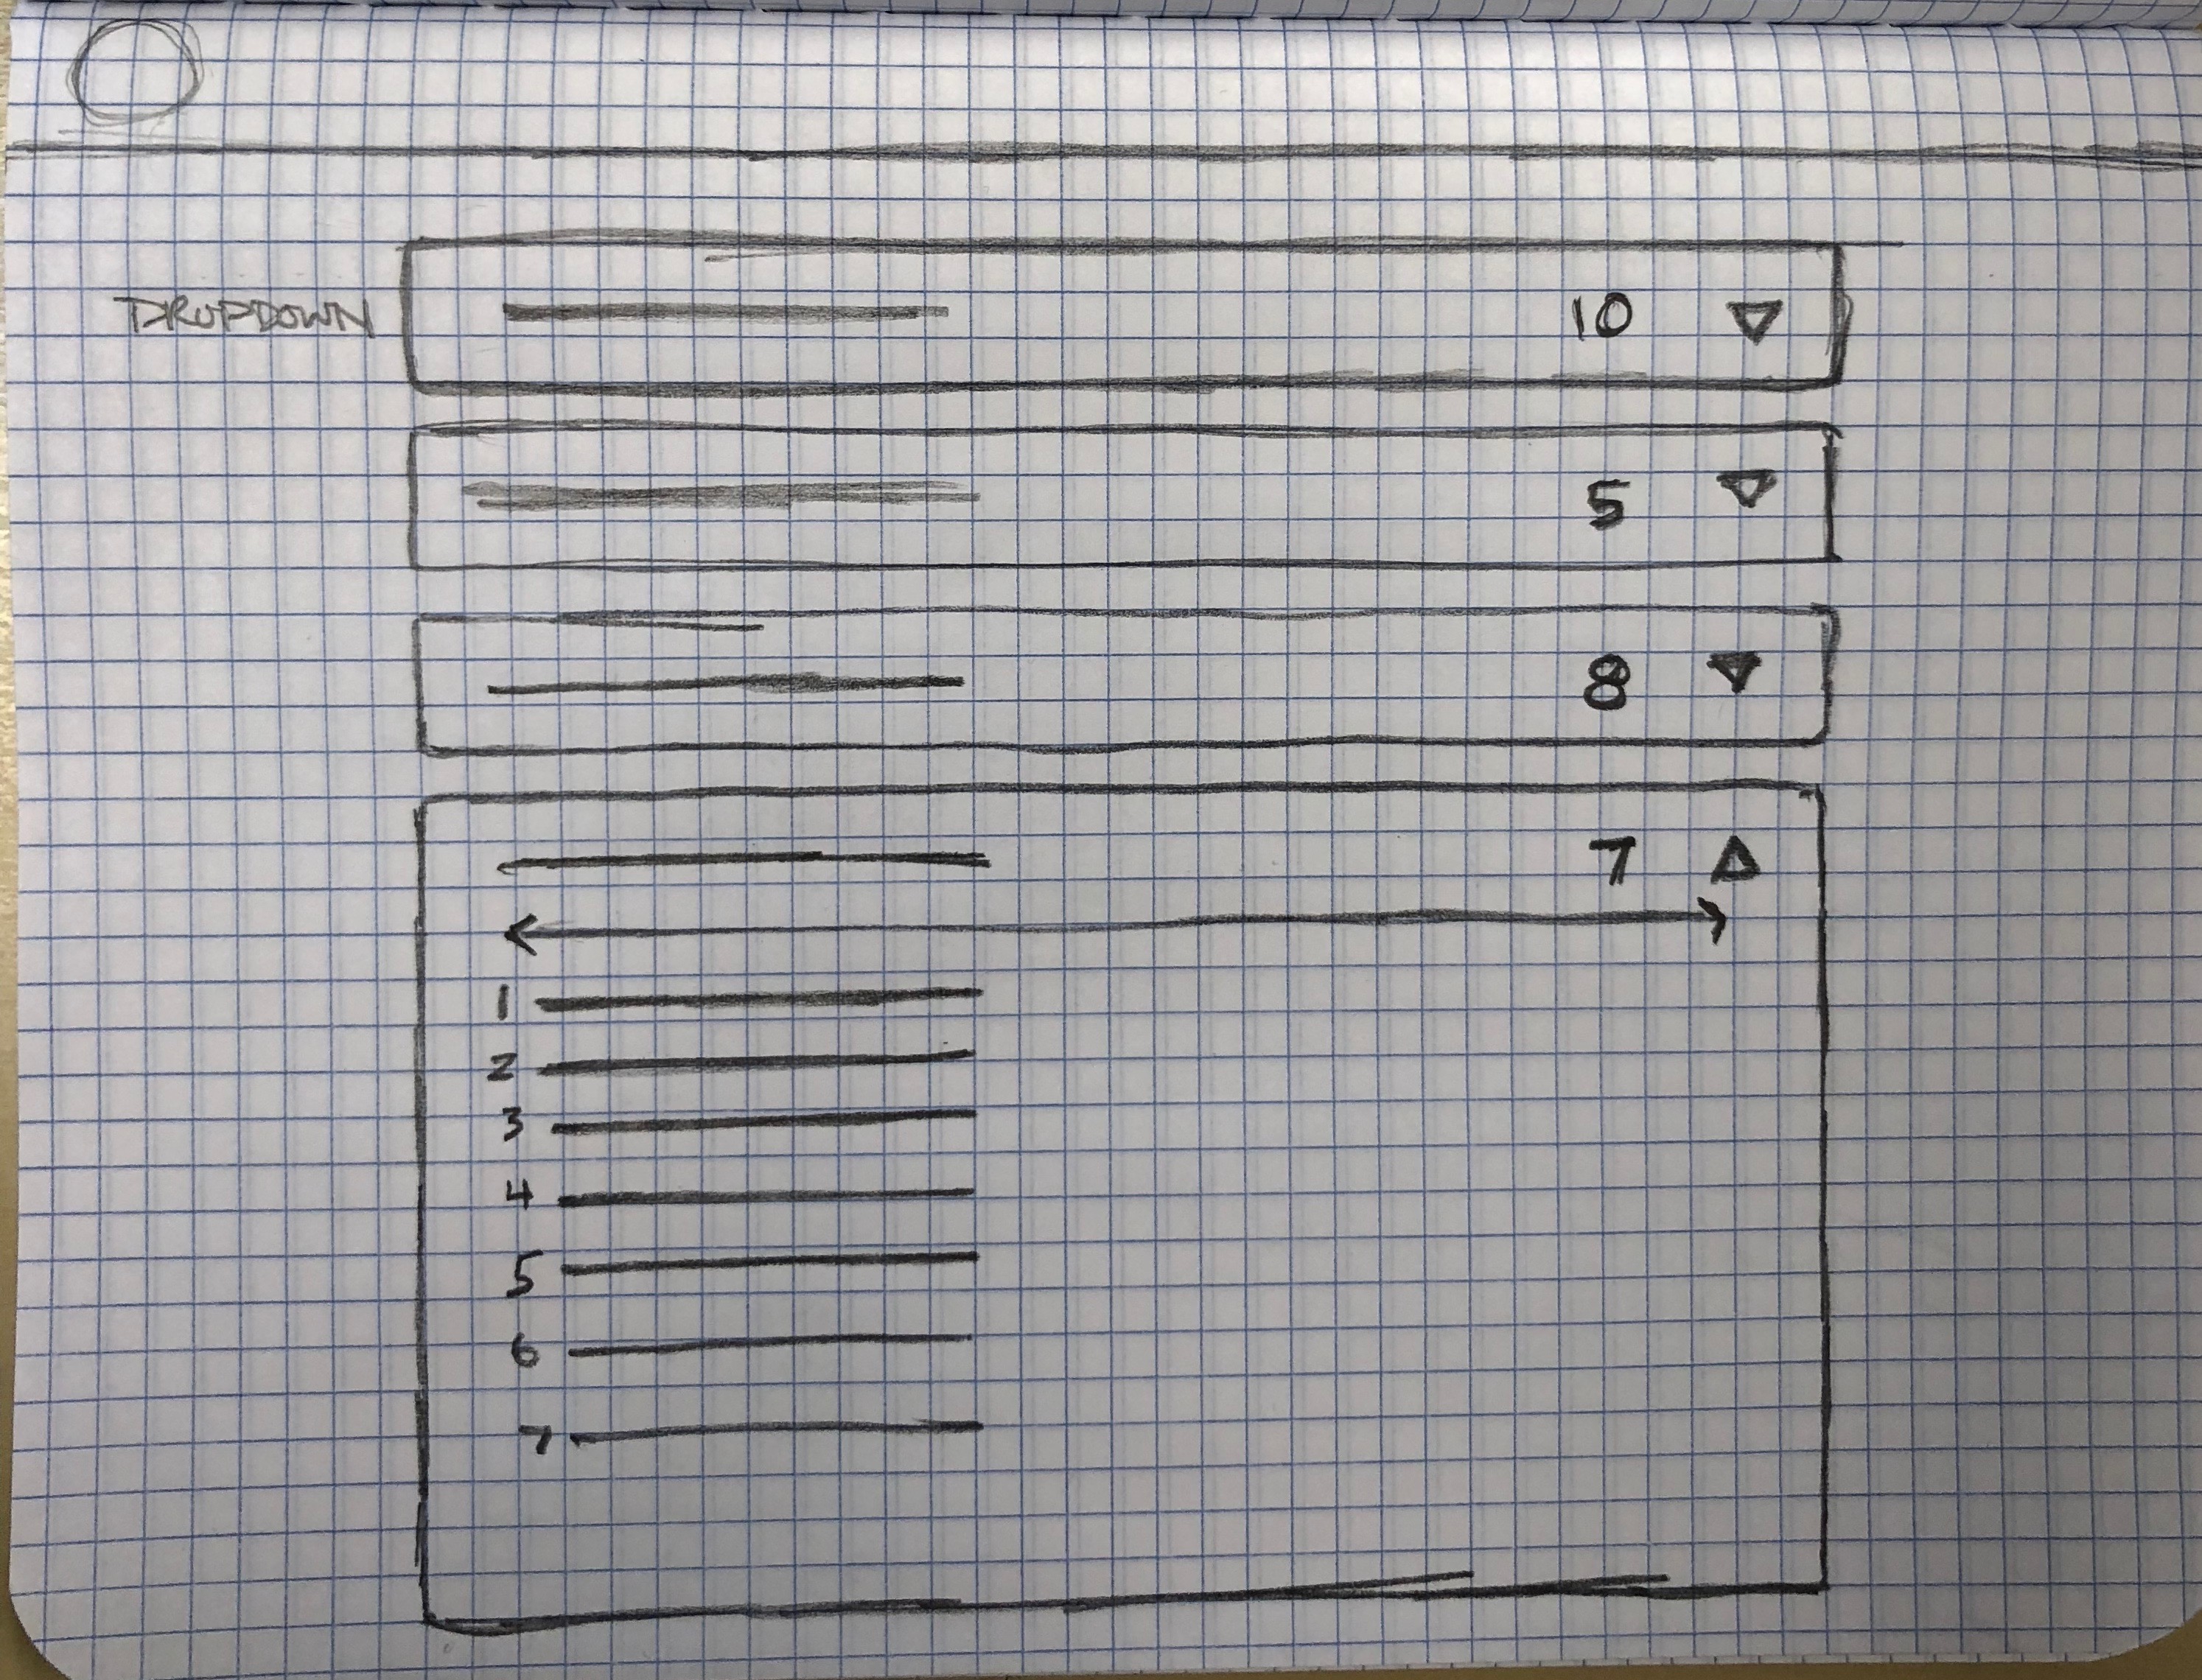 DROPDOWN 10
5
8
7
1
2
3
4
5
6
7